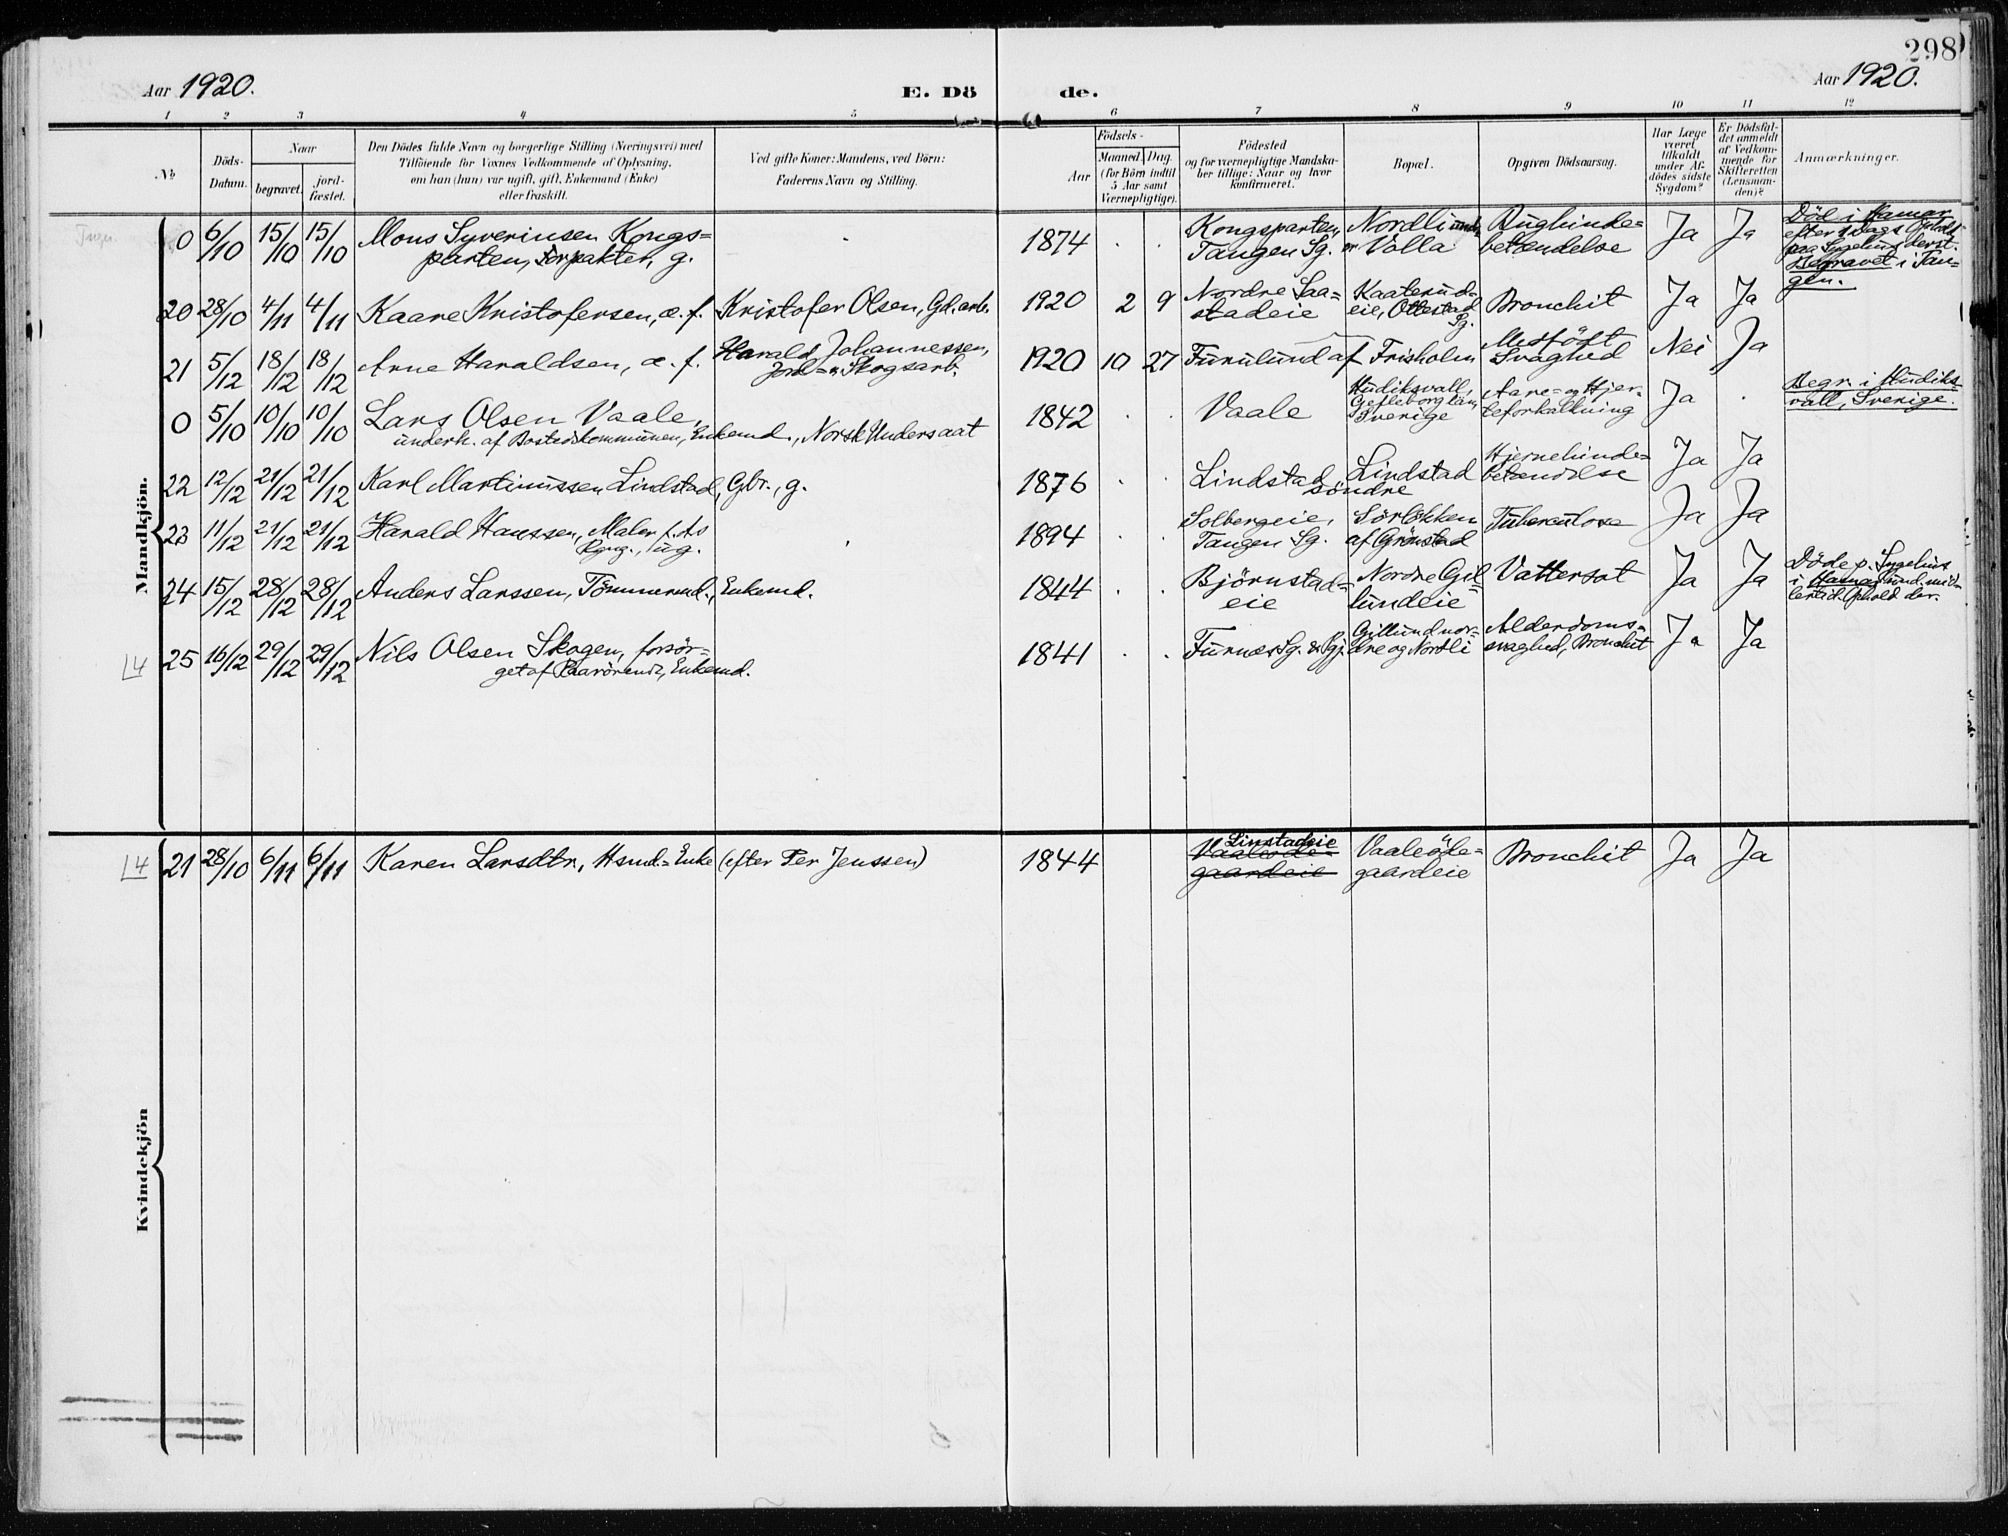 298
Aar 1920.
E. Dö de.
Aar 1920.
1 2 3 4 5 6 7 8 9 10 11 12
№
Döds-
Datum.
Naar
begravet.
jord-
fæstet.
Den Dödes fulde Navn og borgerlige Stilling (Næringsvei) med
Tilföiende for Voxnes Vedkommende af Oplysning,
om han (hun) var ugift, gift, Enkemand (Enke)
eller fraskilt.
Ved gifte Koner: Mandens, ved Börn:
Faderens Navn og Stilling.
Födsels-
Aar
Maaned. Dag.
(for Börn indtil
5 Aar samt
Værnepligtige).
Födested
og for værnepligtige Mandska-
ber tillige: Naar og hvor
konfirmeret.
Bopæl.
Opgiven Dödsaarsag.
Har Læge
været
tilkaldt
under Af-
dödes sidste
Sygdom?
Er Dödsfal-
det anmeldt
af Vedkom-
mende for
Skifteretten
(Lensman-
den)?
Anmærkninger.
Mandkjön.
0 6/10 15/10 15/10 Mons Syverinsen Kongs=
parten, Forpakter, g.
1874 Kongsparten,
Tangen Sg.
Nordli under
Volla
Bughinde=
betændelse
Ja Ja
Död i Hamar
efter Dags Ophold
paa Sygehus derst.
Begravet i Tan-
gen.
20 28/10 4/11 4/11 Kaare Kristofersen, æ. f. Kristofer Olsen, Gd. arb.
1920 2 9 Nordre Saa=
stadeie
Kaaterud=
eie, Ottestad
Sg.
Bronchit Ja Ja
21 5/12 18/12 18/12 Arne Haraldsen, æ. f. Harald Johannessen,
Jord= og Skogsarb.
1920 10 27 Furulund af Frisholm
Medfödt
Svaghed
Nei Ja
0 5/10 10/10 10/10 Lars Olsen Vaale,
underh. af Bostedskommunen, Enkemd., Norsk Undersaat
1842 Vaale
Hudiksvall,
Gefleborg län,
Sverige
Aare= og Hjer-
teforkalkning
Ja
Begr. i Hudiks-
vall, Sverige.
22 12/12 21/12 21/12 Karl Martinussen Lindstad, Gbr., g.
1876 Lindstad Lindstad
söndre
Hjernehinde=
betændelse
Ja Ja
23 11/12 21/12 21/12 Harald Hanssen, Maler f. As
Rgng., ug.
1894 Solbergeie,
Tangen Sg.
Sörlökken
af Grönstad
Tuberculose Ja Ja
24 15/12 28/12 28/12 Anders Larssen, Tömmermd., Enkemd.
1844 Björnstad=
eie
Nordre Gil-
lundeie
Vattersot Ja Ja
Döde p. Sygehus
i Hamar und. mid-
lertid. Ophold der.
4 25 16/12 29/12 29/12 Nils Olsen Skogen, forsör=
get af Paarörende, Enkemd.
1841 Furnes Sg. &
Gillund nor=
dre og Nordli
Alderdoms=
svaghed, Bronchit
Ja Ja
Kvindekjön
4 21 28/10 6/11 6/11 Karen Larsdtr., Hsmd.=Enke (efter Per Jenssen)
1844 Linstadeie
Vaaleöde=
gaardeie
Vaaleöde=
gaardeie
Bronchit Ja Ja